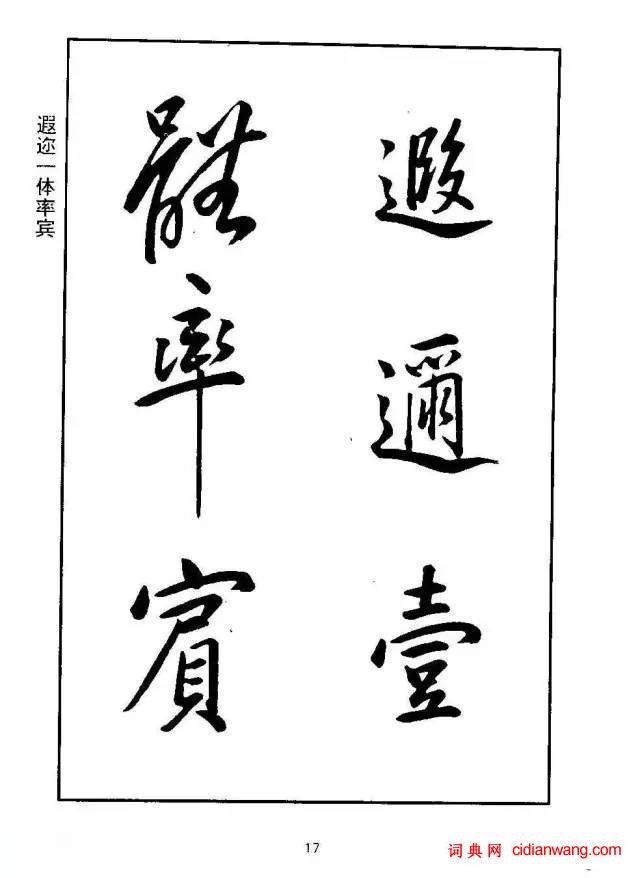 遐邇壹
體率賓
遐迩一体率宾
17
词典网 cidianwang.com